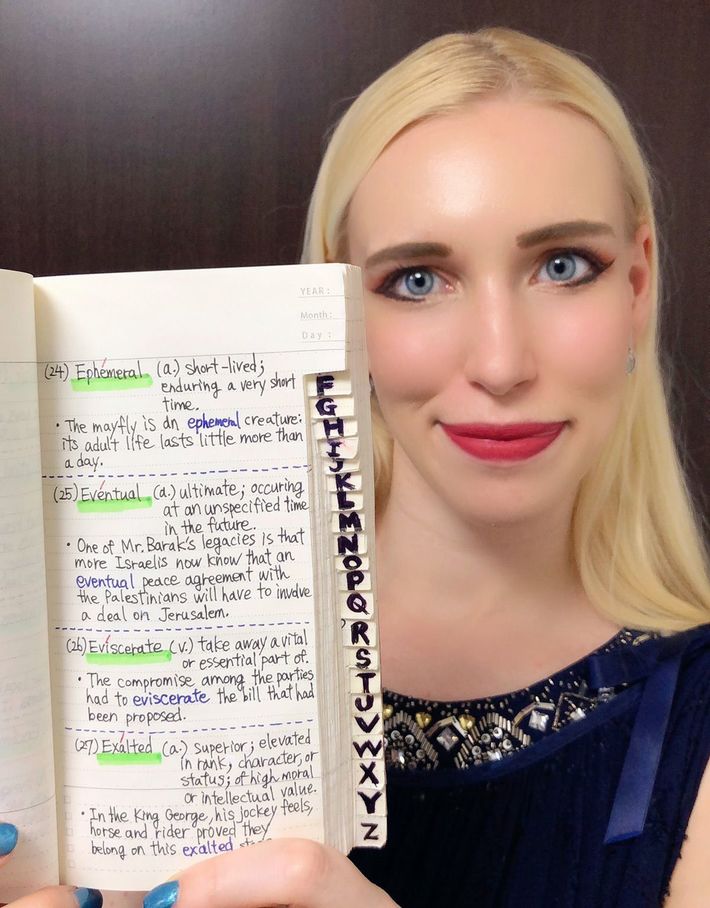 YEAR:
Month:
Day:
(24) Ephemeral (a.) short-lived;
enduring a very short
time.
• The mayfly is an ephemeral creature:
its adult life lasts little more than
a day.
(25) Eventual (a.) ultimate; occuring
at an unspecified time
in the future.
• One of Mr. Barak's legacies is that
more Israelis now know that an
eventual peace agreement with
the Palestinians will have to involve
a deal on Jerusalem.
(26) Eviscerate (v.) take away a vital
or essential part of.
• The compromise among the parties
had to eviscerate the bill that had
been proposed.
(27) Exalted (a.) superior; elevated
in rank, character, or
status; of high moral
or intellectual value.
• In the King George, his jockey feels,
horse and rider proved they
belong on this exalted
F
G
H
I
J
K
L
M
N
O
P
Q
R
S
T
U
V
W
X
Y
Z